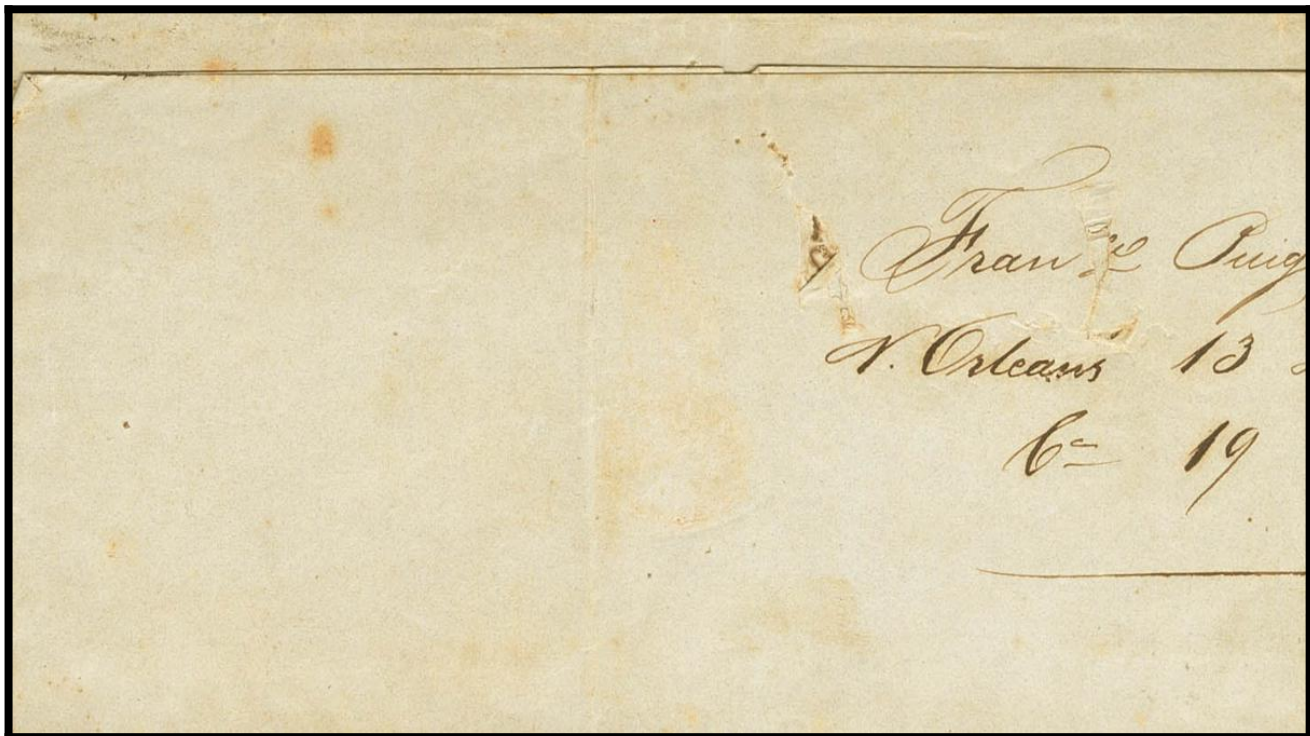 Fran.co Puig
N. Orleans 13
Ca 19